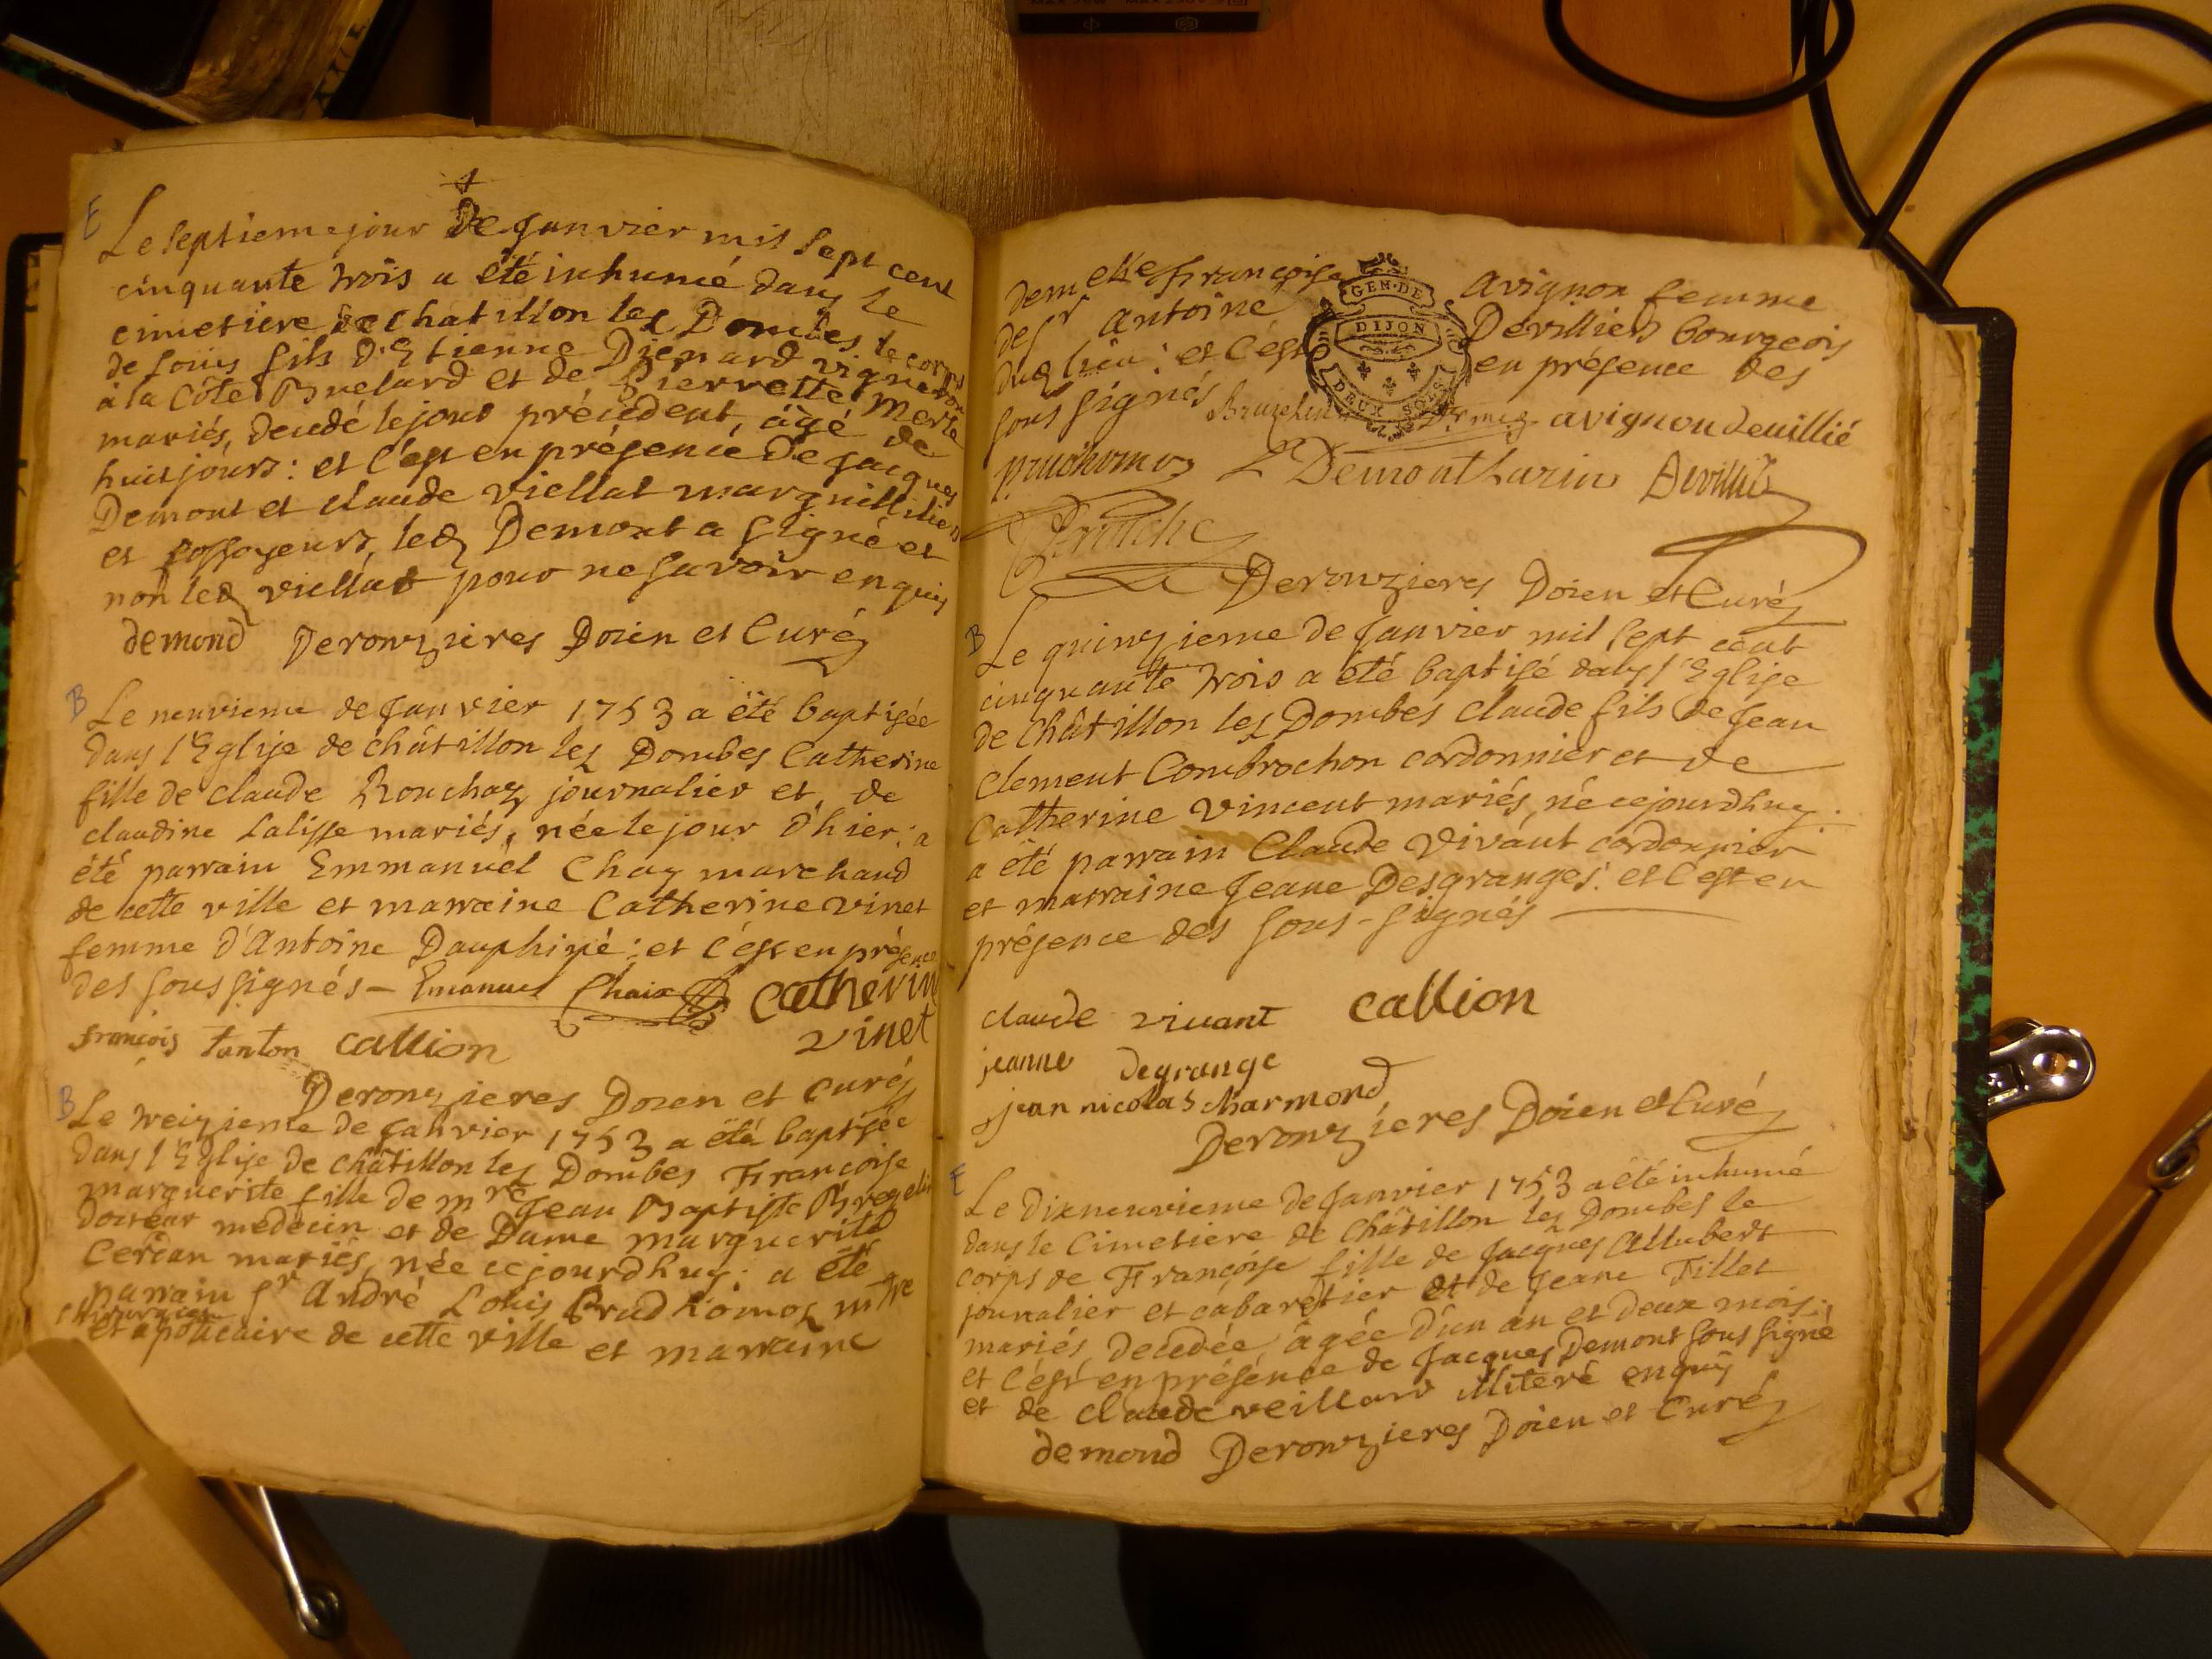 E
Le septieme jour De Janvier mil sept cent
cinquante trois a été inhumé dans le
cimetiere de chatillon les Dombes le corps
de Loüis fils d'Etienne Dienard vigneron
à la Côte Buelard et de Pierrette Merle
mariés, decedé le jour précedent, âgé de
huit jours: et c'est en présence De Jacques
Demont et claude viellat marguilliliers
et fossoyeurs, led Demont a signé et
non led viellat pour ne savoir enquis
demond Deronzieres Doien et Curé
B
Le neuvieme de Janvier 1753 a été baptisée
dans l'Eglise de châtillon les Dombes Catherine
fille de claude Rouchaz journalier et de
claudine Lalisse mariés, née le jour d'hier: a
été parrain Emmanuel Chay marchand
de cette ville et marraine Catherine vinet
femme d'Antoine Dauphiné: et c'est en présence
des sous signés - Emanuel Chaix catherin
vinet
françois tanton callion
Deronzieres Doien et Curé
B
Le treizieme de Janvier 1753 a été baptisée
dans l'Eglise de châtillon les Dombes Françoise
marguerite fille de mre Jean Baptiste
docteur medecin et de Dame marguerite
mariés, née cejourdhuy: a été
parrain sr André Loüis Prudhomos mtre
et apoticaire de cette ville et marraine
demelle Françoise avignon femme
de sr Antoine Devilliers bourgeois
dud lieu: et c'est en présence des
sous signés avignon deuillié
prudhomos Demonthurin Devillie
Deronzieres Doien et Curé
B
Le quinzieme de Janvier mil sept cent
cinquante trois a été baptisé dans l'Eglise
de Châtillon les Dombes claude fils de Jean
Clement Combrochon cordonnier et de
Catherine vincent mariés, né cejourdhuy:
a été parrain Claude Vivant cordonnier
et marraine Jeane Desgranges: et c'est en
présence des sous-signés
claude vivant callion
jeanne degrange
jean nicolas charmond
Deronzieres Doien et Curé
E
Le dixneuvieme de Janvier 1753 a été inhumé
dans le Cimetiere de Châtillon les Dombes le
corps de Françoise fille de Jacques Allubert
journalier et cabaretier et de Jeane Fillet
mariés, decedée, âgée d'un an et deux mois:
et c'est en présence de Jacques Demont sous signé
et de claude veillard illiteré enquis
demond Deronzieres Doien et Curé
GEN. DE
DIJON
DEUX SOLS